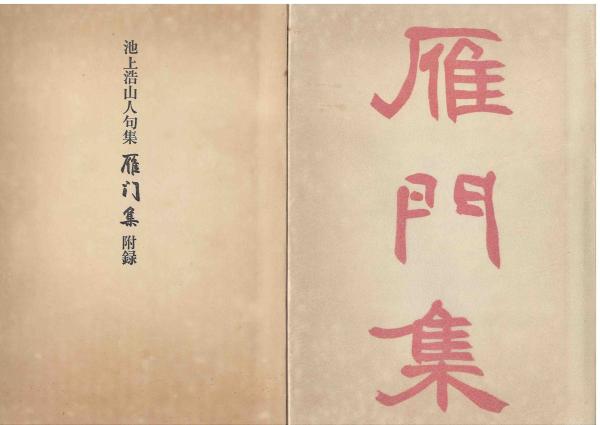 雁門集
池上浩山人句集 雁门集 附録